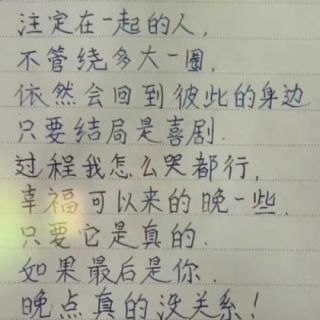 注定在一起的人,
不管绕多大一圈,
依然会回到彼此的身边
只要结局是喜剧.
过程我怎么哭都行,
幸福可以来的晚一些.
只要它是真的.
如果最后是你.
晚点真的没关系!